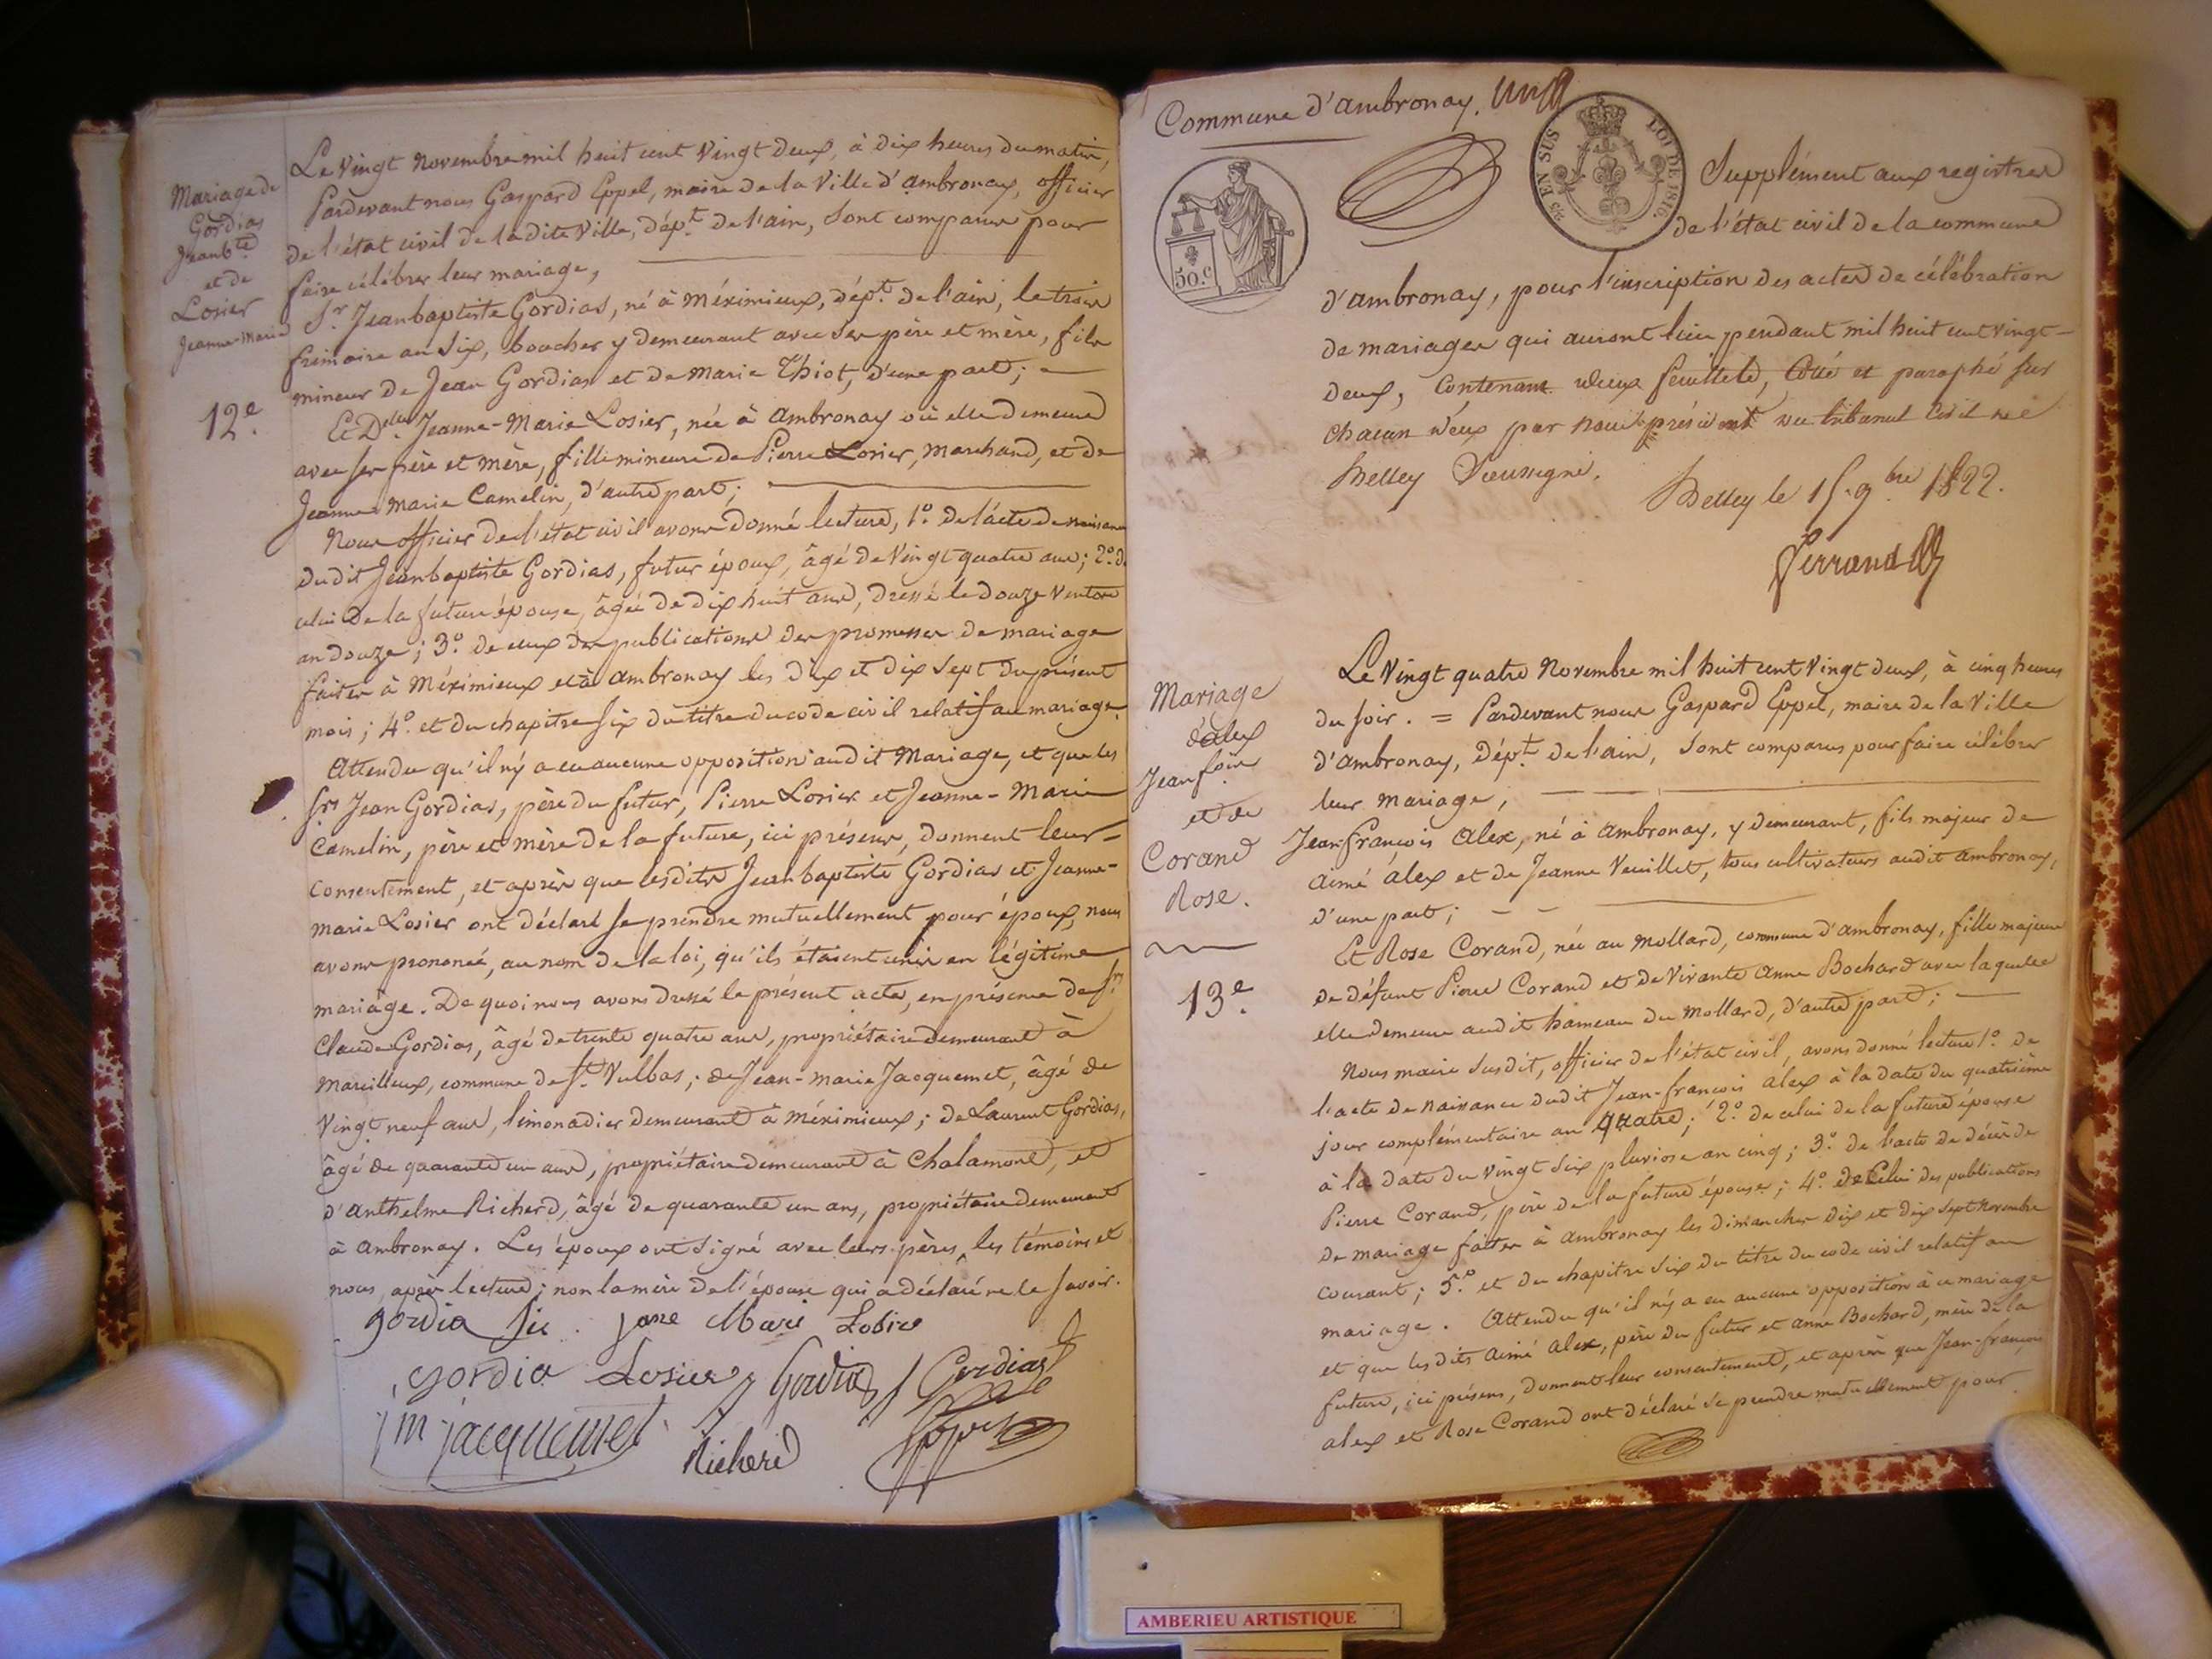 Mariage de
Gordias
Jeanb.te
et de
Losier
Jeanne-Marie
12e.
Le Vingt Novembre mil huit cent Vingt Deux, à dix heures du matin,
Pardevant nous Gaspard Eppel, maire de la Ville d'ambronay, officier
de l'état civil de la dite Ville, dép.t de l'ain, sont comparus pour
faire célébrer leur mariage,
S.r Jean baptiste Gordias, né à Méximieux, dép.t de l'ain, le trois
frimaire an Six, boucher y demeurant avec ses père et mère, fils
mineur de Jean Gordias et de Marie Thiot, d'une part;
Et D.elle Jeanne-Marie Losier, née à Ambronay où elle demeure
avec ses père et mère, fille mineure de Pierre Losier, marchand, et de
Jeanne Marie Camelin, d'autre part;
Nous officier de l'état civil avons donné lecture, 1.o de l'acte de naissance
du dit Jean baptiste Gordias, futur époux, âgé de Vingt quatre ans; 2.o de
celui de la future épouse, âgée de dix huit ans, dressé le douze Ventose
an douze; 3.o de ceux des publications des promesses de mariage
faites à Méximieux et à Ambronay les dix et dix sept du présent
mois; 4.o et du chapitre six du titre du code civil relatif au mariage.
Attendu qu'il n'y a eu aucune opposition audit Mariage, et que les
Srs Jean Gordias, père du futur, Pierre Losier et Jeanne-Marie
Camelin, père et mère de la future, ici présens, donnent leur
consentement, et après que lesdits Jean baptiste Gordias et Jeanne-
Marie Losier ont déclaré se prendre mutuellement pour époux, nous
avons prononcé, au nom de la loi, qu'ils étaient unis en légitime
mariage. De quoi nous avons dressé le présent acte, en présence de Srs
Claude Gordias, âgé de trente quatre ans, propriétaire demeurant à
Marcilleux, commune de S.t Vulbas; de Jean-Marie Jacquemet, âgé de
Vingt neuf ans, limonadier demeurant à Méximieux; de Laurent Gordias,
âgé de quarante un ans, propriétaire demeurant à Chalamont, et
d'Anthelme Richerd, âgé de quarante un ans, propriétaire demeurant
à Ambronay. Les époux ont signé avec leurs pères, les témoins et
nous, après lecture; non la mère de l'épouse qui a déclaré ne le savoir.
gordia jane Marie Losier
gordia Losier Gordias Gordias
jm jacquemet Richerd Eppel
Commune d'ambronay.
50.c
EN SUS
LOI DE 1816.
Supplément aux registres
de l'état civil de la commune
d'ambronay, pour l'inscription des actes de célébration
de mariages qui auront lieu pendant mil huit cent vingt-
deux, Contenant deux feuillets, Coté et paraphé sur
chacun d'eux par nous président du tribunal civil de
Belley Soussigné.
Belley le 15. 9.bre 1822.
Ferrand
Mariage
d'alex
Jean f.ois
et de
Corand
Rose.
13e.
Le Vingt quatre Novembre mil huit cent Vingt deux, à cinq heures
du soir. = Pardevant nous Gaspard Eppel, maire de la Ville
d'Ambronay, Dép.t de l'ain, sont comparus pour faire célébrer
leur mariage,
Jean-françois Alex, né à Ambronay, y demeurant, fils majeur de
aimé alex et de Jeanne Veuillet, tous cultivateurs audit ambronay,
d'une part;
Et Rose Corand, née au Mollard, commune d'ambronay, fille majeure
de défunt Pierre Corand et de Vivante Anne Bochard avec laquelle
elle demeure audit hameau du Mollard, d'autre part;
Nous maire susdit, officier de l'état civil, avons donné lecture 1.o de
l'acte de naissance dudit Jean-françois alex à la date du quatrième
jour complémentaire an quatre; 2.o de celui de la future épouse
à la date du vingt six pluviose an cinq; 3.o de l'acte de décès de
Pierre Corand, père de la future épouse; 4.o de Celui des publications
de mariage faites à Ambronay les dimanches dix et dix sept Novembre
courant; 5.o et du chapitre six du titre du code civil relatif au
mariage. Attendu qu'il n'y a eu aucune opposition à ce mariage
et que lesdits Aimé Alex, père du futur et Anne Bochard, mère de la
future, ici présens, donnent leur consentement, et après que Jean-françois
alex et Rose Corand ont déclaré se prendre mutuellement pour
AMBERIEU ARTISTIQUE